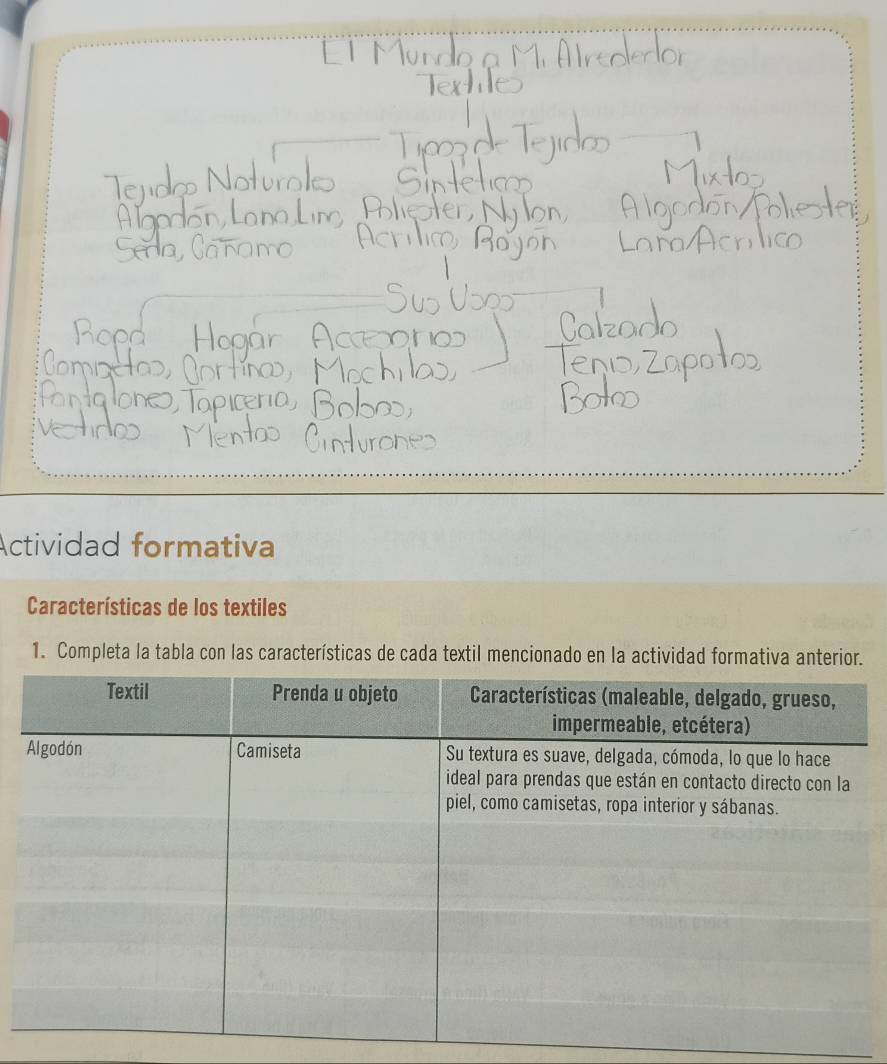 El Mundo a Mi Alrededor
Textiles
Tipos de Tejidos
Tejidos Naturales Sintéticos Mixtos
Algodón, Lana, Lino, Poliester, Nylon, Algodón/Poliester,
Seda, Cañamo Acrilico, Rayón Lana/Acrilico
Sus Usos
Ropa Hogar Accesorios Calzado
Camisetas, Cortinas, Mochilas, Tenis, Zapatos
Pantalones, Tapiceria, Bolsos, Botas
Vestidos Mentas Cinturones
Actividad formativa
Características de los textiles
1. Completa la tabla con las características de cada textil mencionado en la actividad formativa anterior.
Textil Prenda u objeto Características (maleable, delgado, grueso,
impermeable, etcétera)
Algodón Camiseta Su textura es suave, delgada, cómoda, lo que lo hace
ideal para prendas que están en contacto directo con la
piel, como camisetas, ropa interior y sábanas.